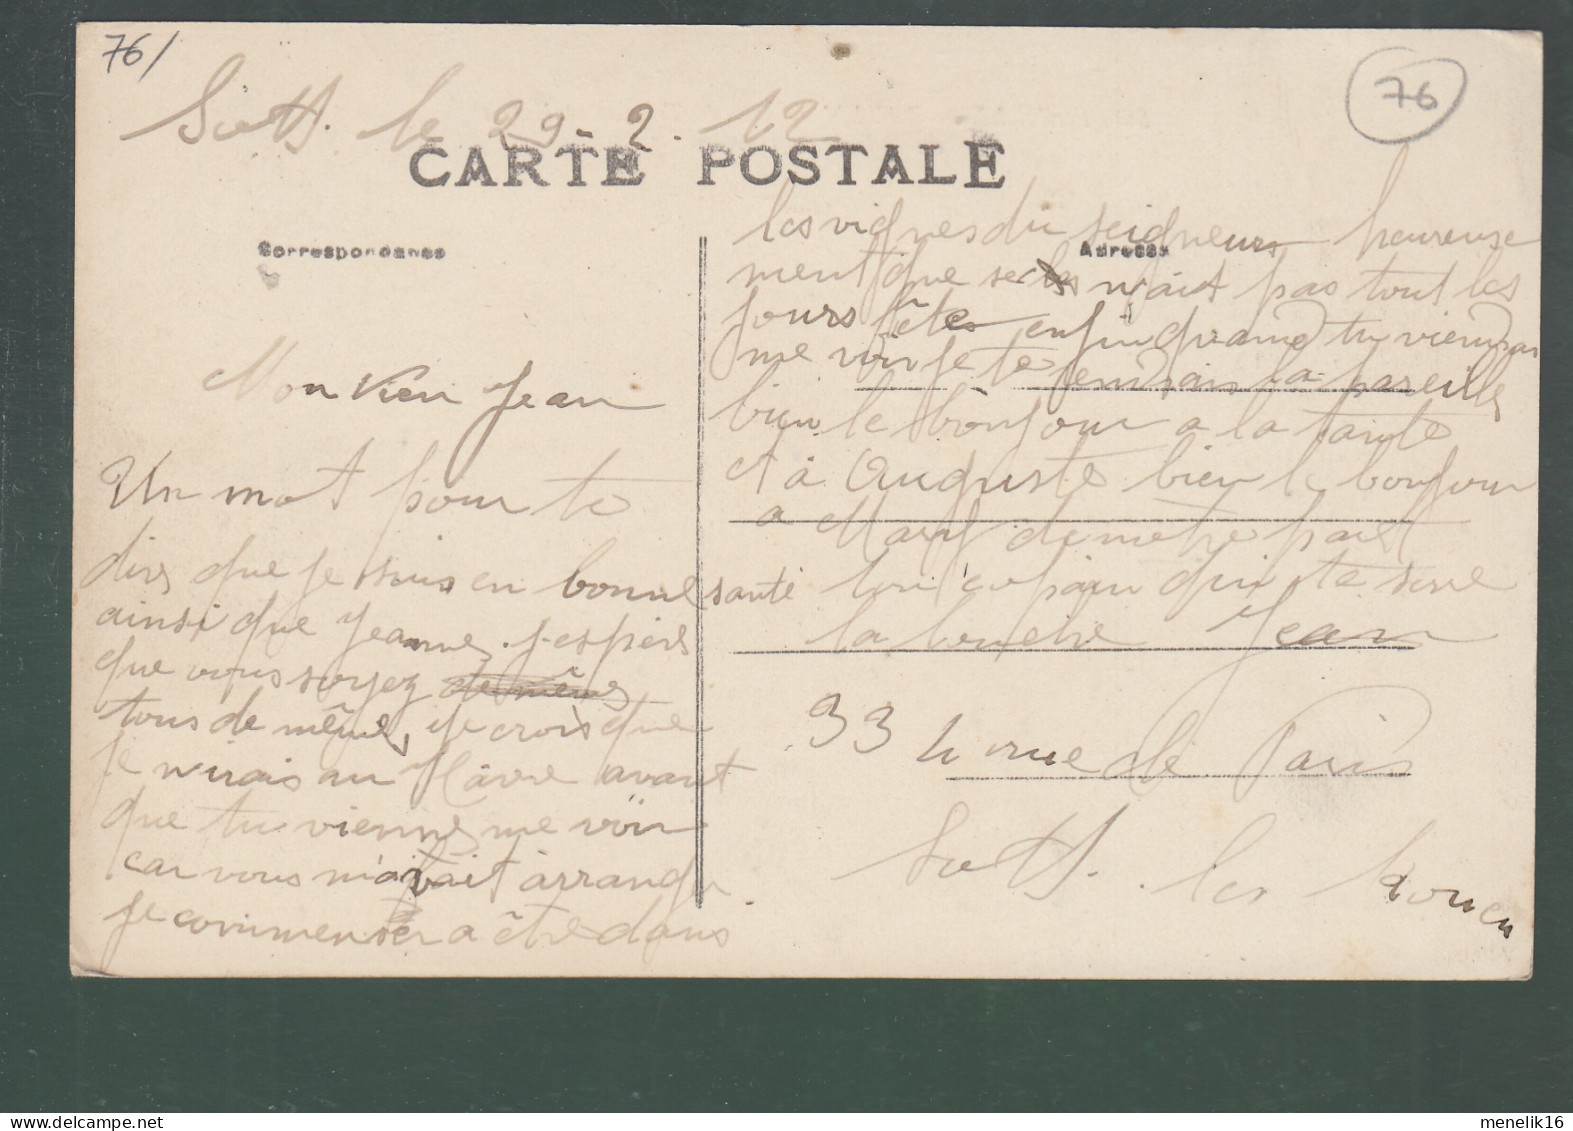 76/
76
Sott. le 29-2-12
CARTE POSTALE
Correspondance
Adresse
Mon vieu Jean
Un mot pour te
dire que je suis en bonne santé
ainsi que Jeanne, j'espère
que vous soyez de même
tous de même, je crois que
je n'irais au Hâvre avant
que tu vienne me voir
car vous m'avait arranger
je commenser a être dans
les vignes du seigneur heureuse
ment que se n'ait pas tout les
jours fêtes enfin quand tu viendras
me voir je te rendrais la pareille
bien le bonjour a la tante
et à Auguste bien le bonjour
a de notre part
ton copain qui te serre
la louche Jean
33 rue de Paris
Sott. les Rouen
delcampe.net
menelik16